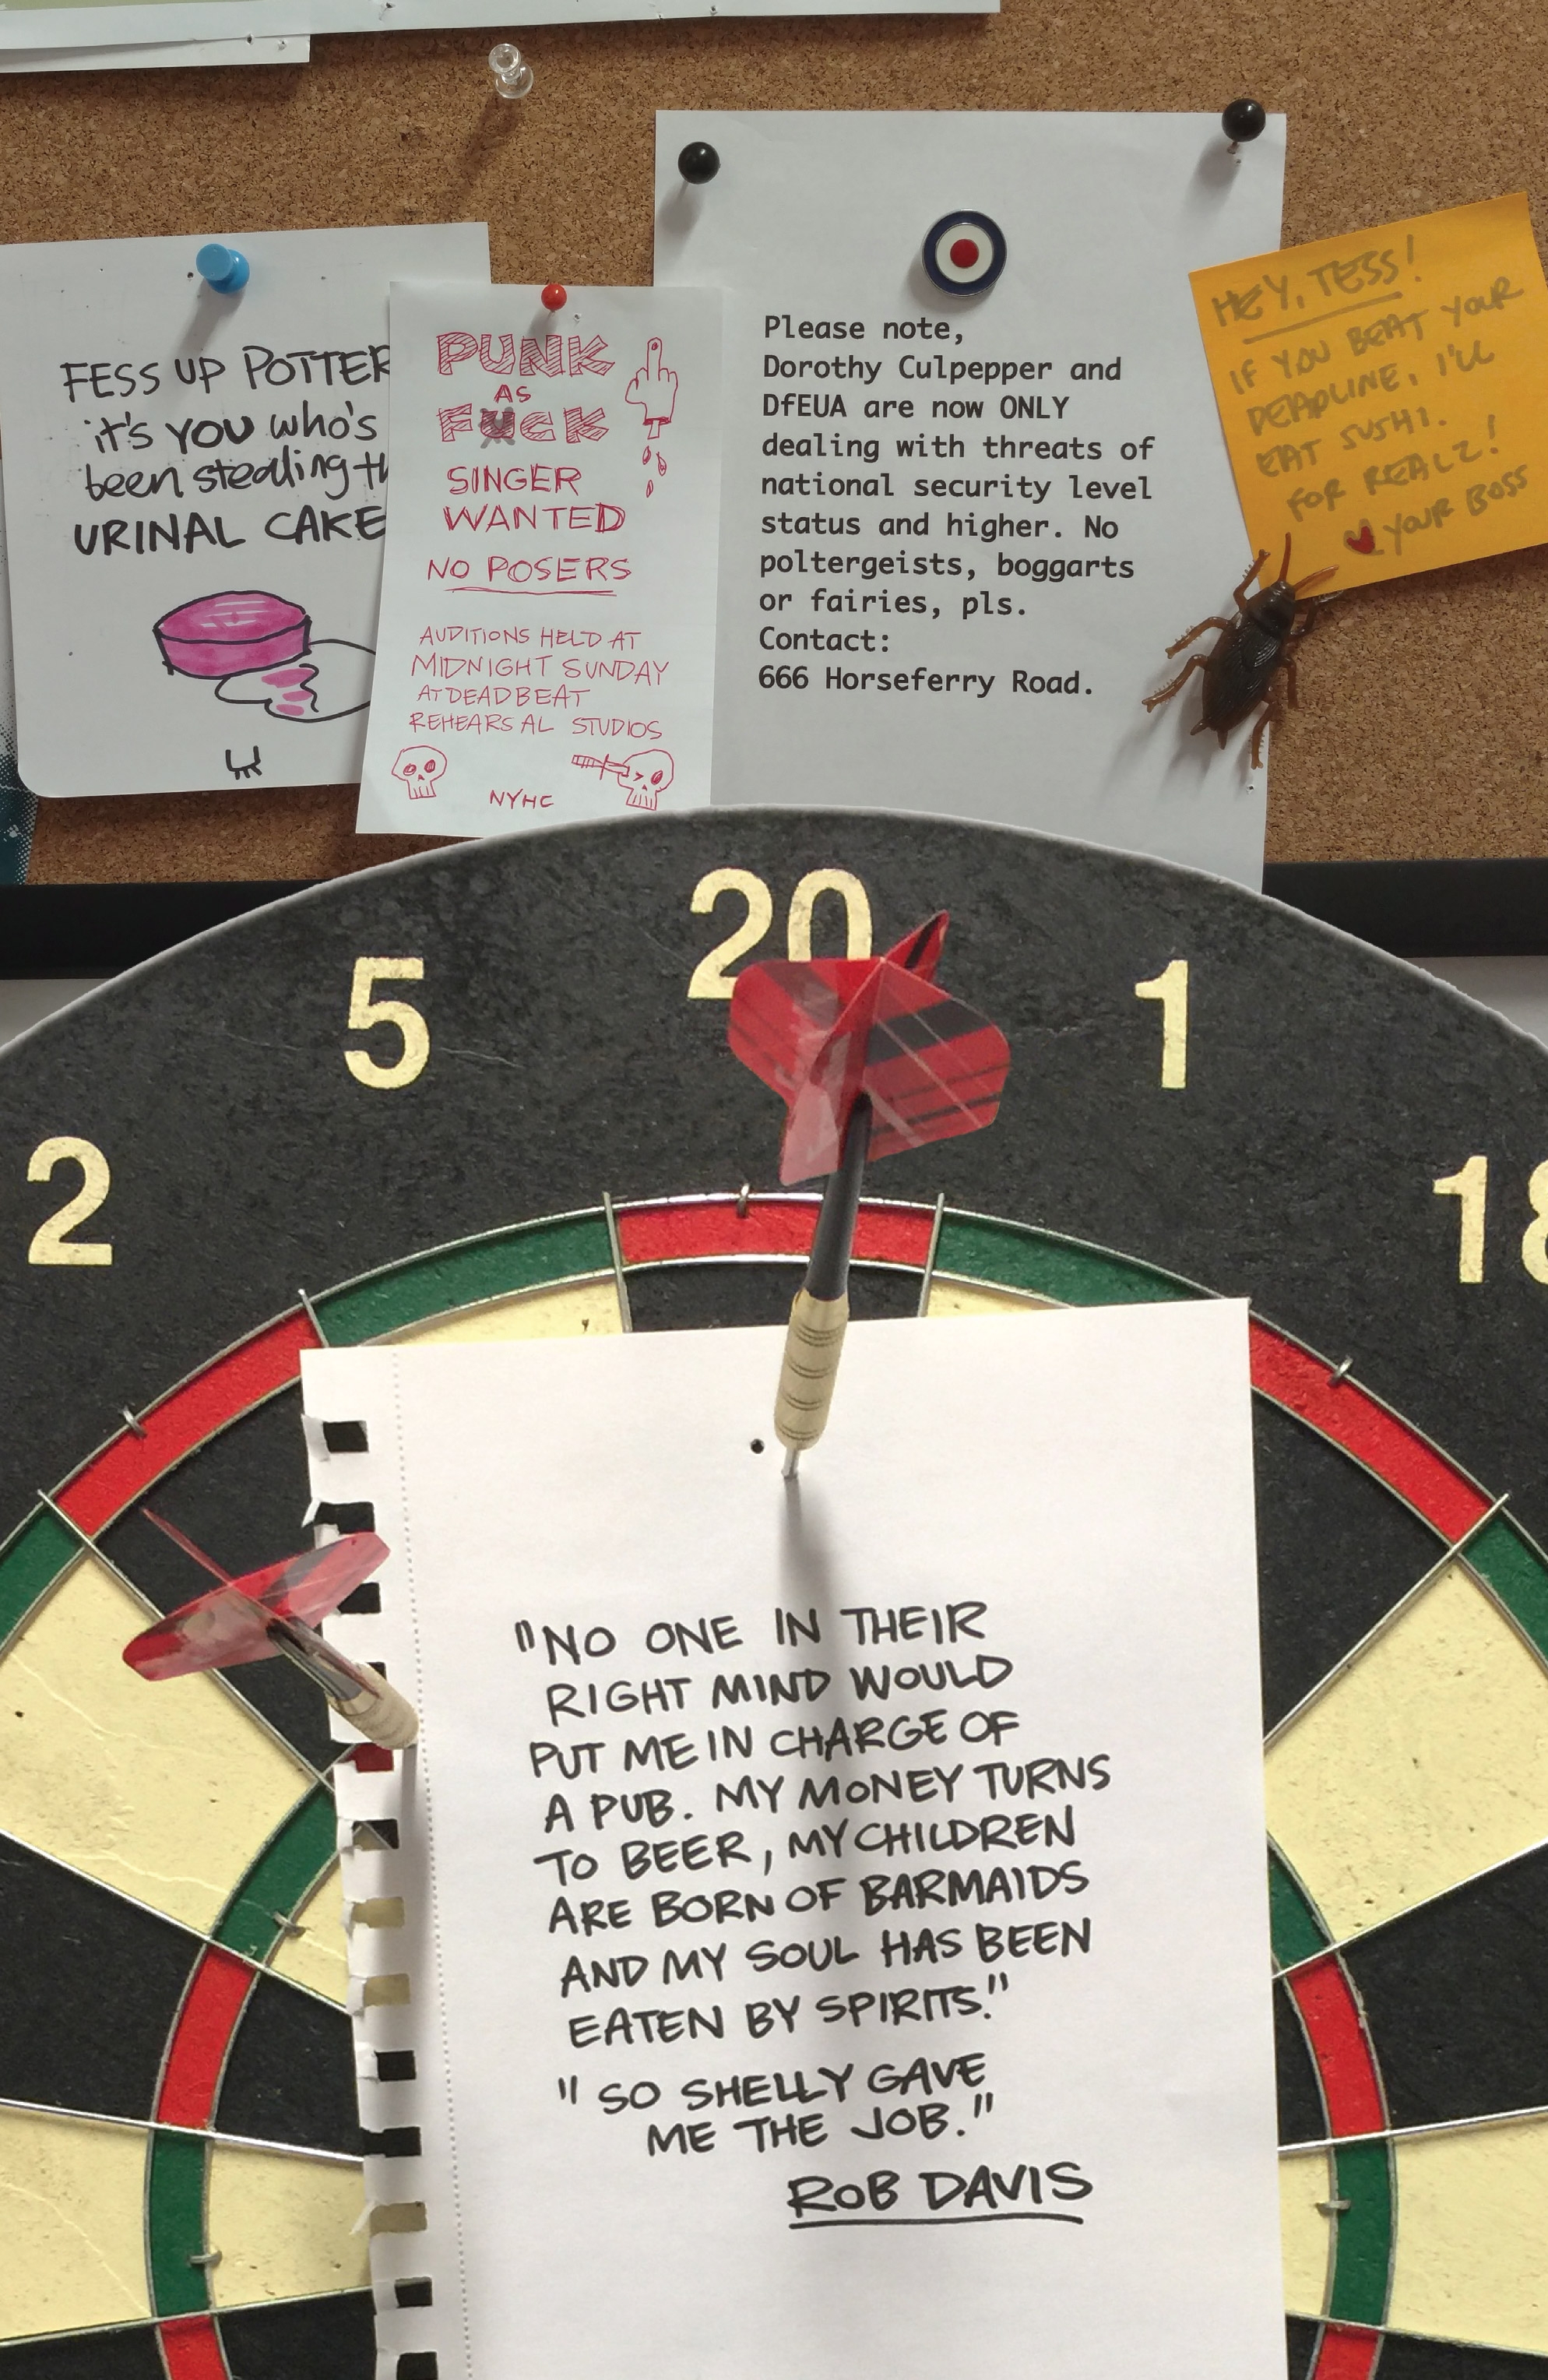 FESS UP POTTER
it's YOU who's
been stealing th
URINAL CAKE
PUNK
AS
FUCK
SINGER
WANTED
NO POSERS
AUDITIONS HELD AT
MIDNIGHT SUNDAY
AT DEADBEAT
REHEARSAL STUDIOS
NYHC
Please note,
Dorothy Culpepper and
DfEUA are now ONLY
dealing with threats of
national security level
status and higher. No
poltergeists, boggarts
or fairies, pls.
Contact:
666 Horseferry Road.
HEY, TESS!
IF YOU BEAT YOUR
DEADLINE, I'LL
EAT SUSHI.
FOR REALZ!
YOUR BOSS
20
5
1
2
18
"NO ONE IN THEIR
RIGHT MIND WOULD
PUT ME IN CHARGE OF
A PUB. MY MONEY TURNS
TO BEER, MY CHILDREN
ARE BORN OF BARMAIDS
AND MY SOUL HAS BEEN
EATEN BY SPIRITS."
"SO SHELLY GAVE
ME THE JOB."
ROB DAVIS